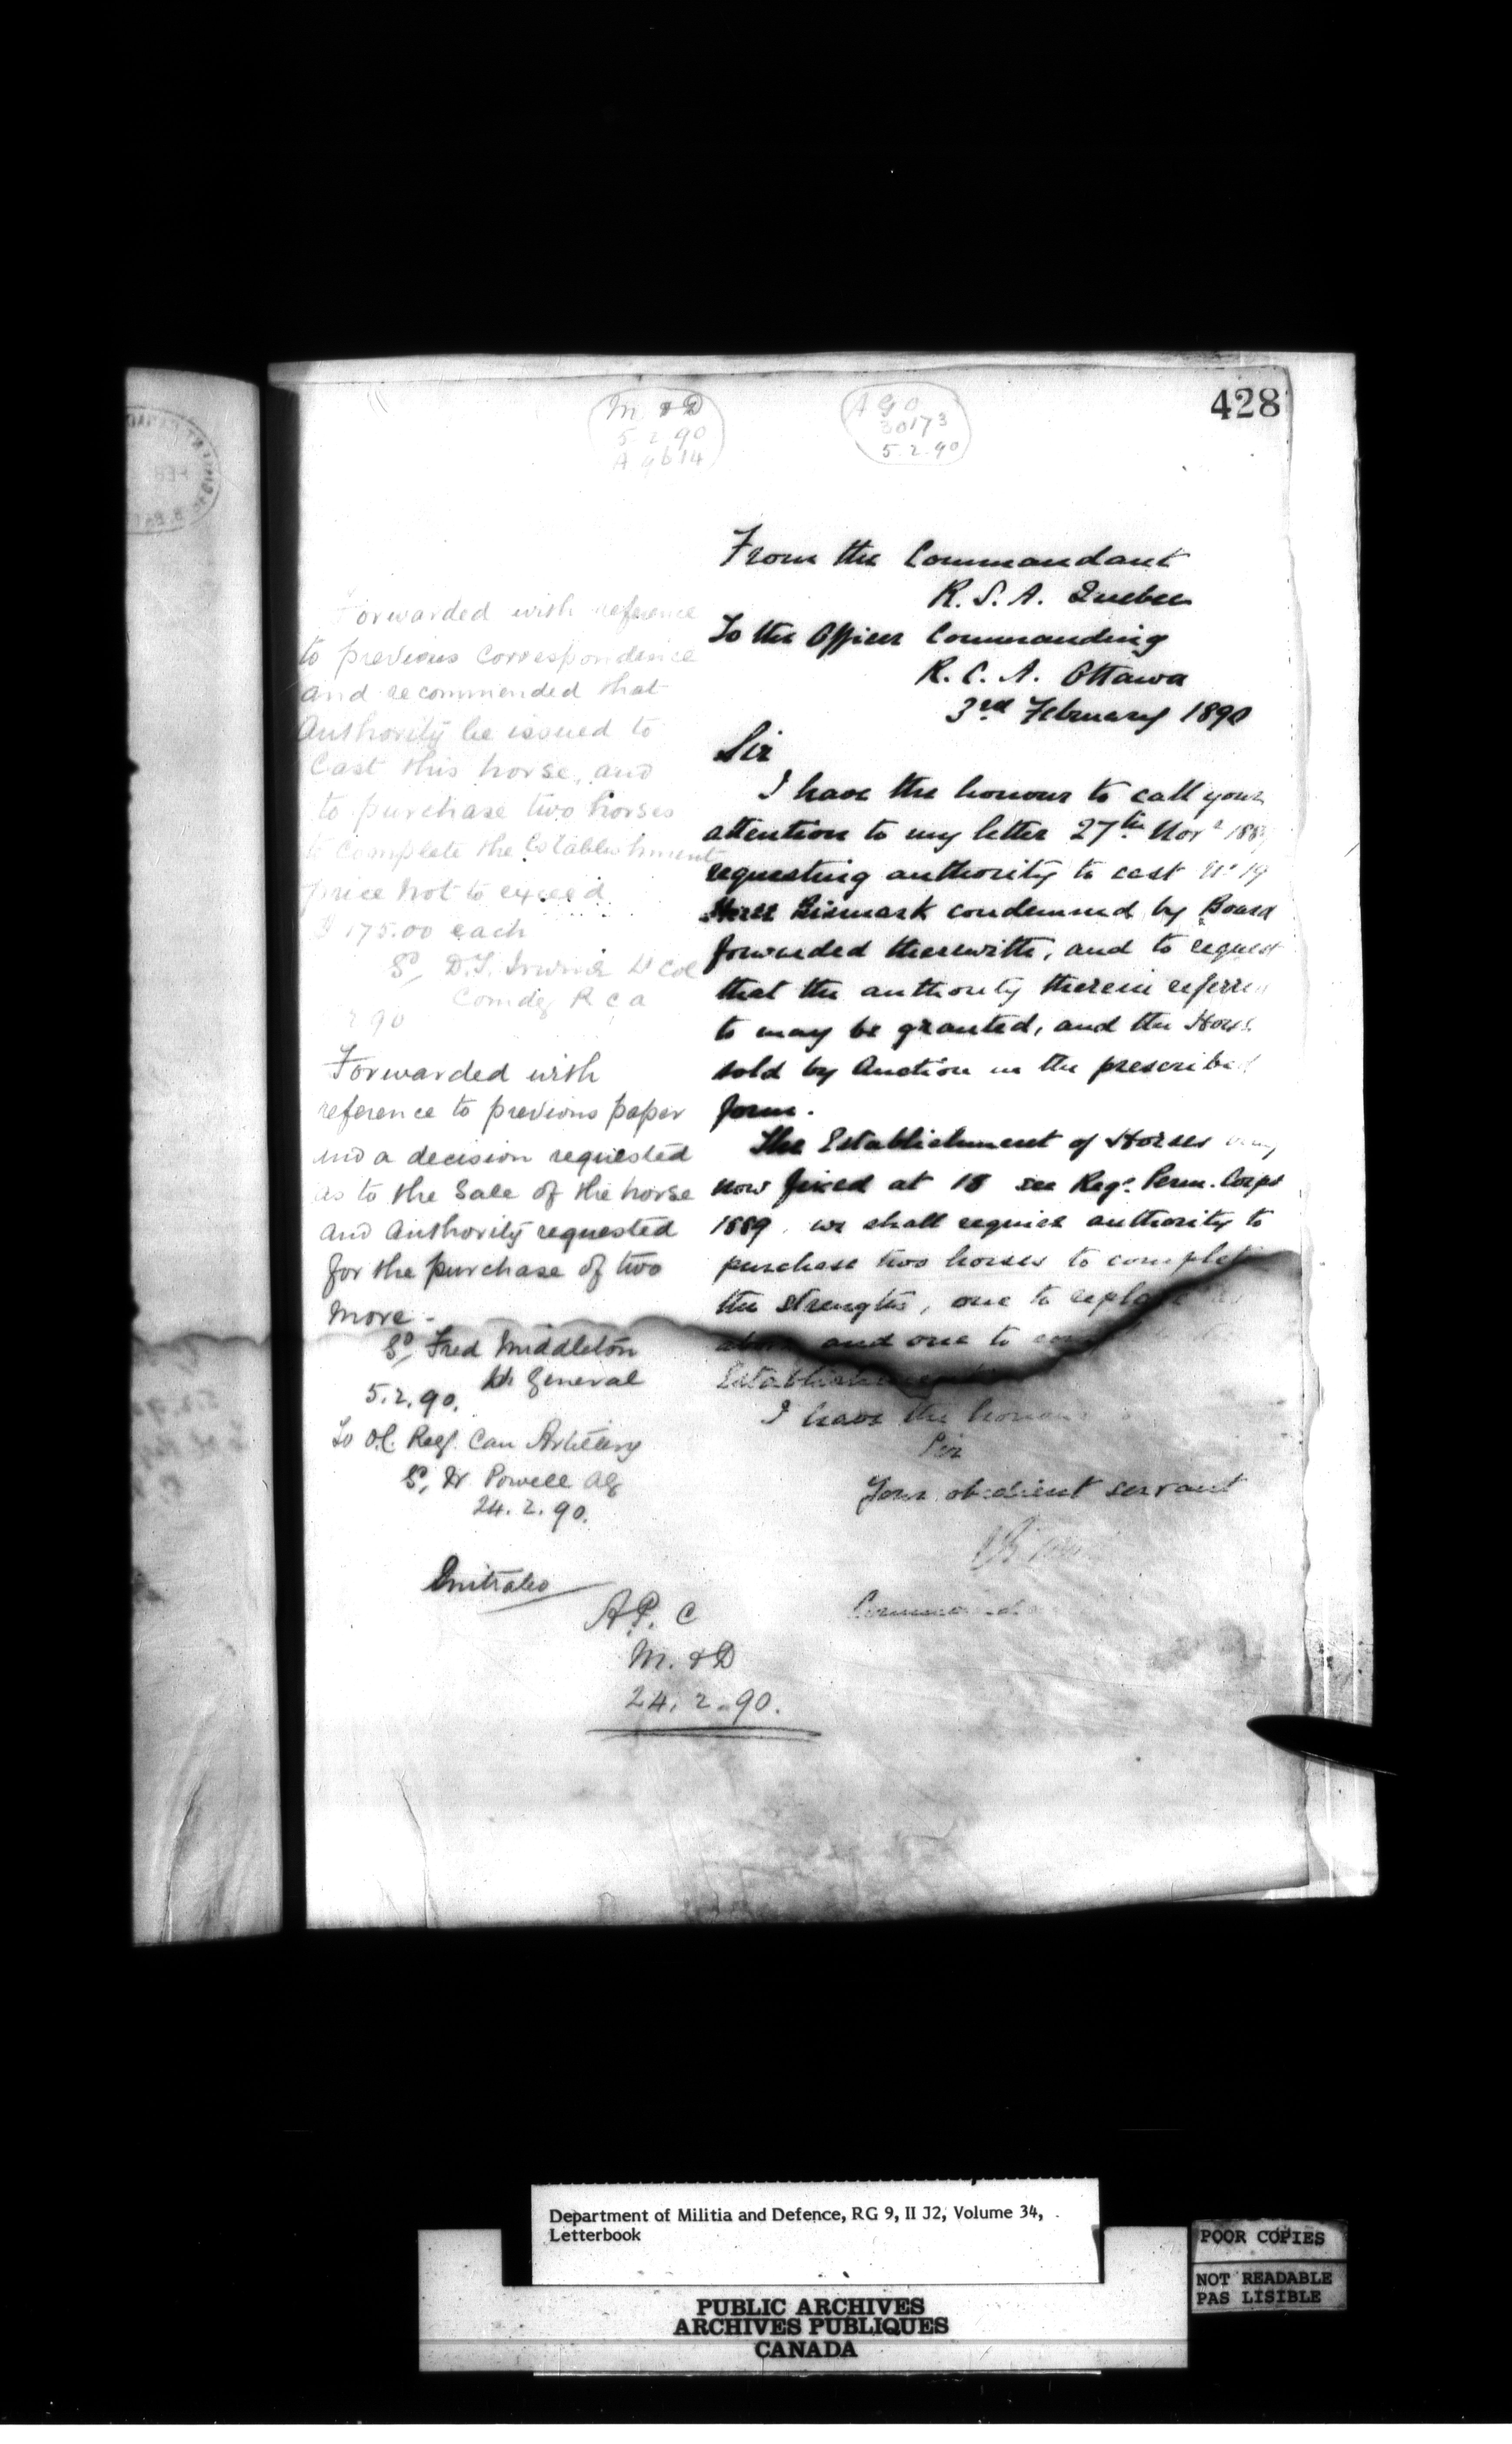 428
M & D
5.2.90
A 9614
A G O
30173
5.2.90
From the Commandant
R. S. A. Quebec
To the Officer Commanding
R. C. A. Ottawa
3rd February 1890
Sir
I have the honour to call your
attention to my letter 27th Novr 188
requesting authority to cast No 19
Horse Bismark condemned by Board
forwarded therewith, and to request
that the authority therein referred
to may be granted, and the Horse
sold by Auction in the prescribed
form.
The Establishment of Horses
now fixed at 18 see Regs. Perm. Corps
1889, we shall require authority to
purchase two horses to complete
the strength, one to replace
and one to
Establishment
I have the honour
Sir
Your obedient servant
Forwarded with reference
to previous correspondence
and recommended that
Authority be issued to
Cast this horse, and
to purchase two horses
to complete the Establishment
price not to exceed
$175.00 each
Sd, D.T. Irwin Lt Col
Comdg R C A
2 90
Forwarded with
reference to previous paper
and a decision requested
as to the Sale of the horse
and Authority requested
for the purchase of two
more -
Sd, Fred Middleton
Lt General
5.2.90.
To O.C. Regt. Can Artillery
Sd, W. Powell AG
24.2.90.
Initialed
A.P. C
M. & D
24.2.90.
Department of Militia and Defence, RG 9, II J2, Volume 34,
Letterbook
PUBLIC ARCHIVES
ARCHIVES PUBLIQUES
CANADA
POOR COPIES
NOT READABLE
PAS LISIBLE